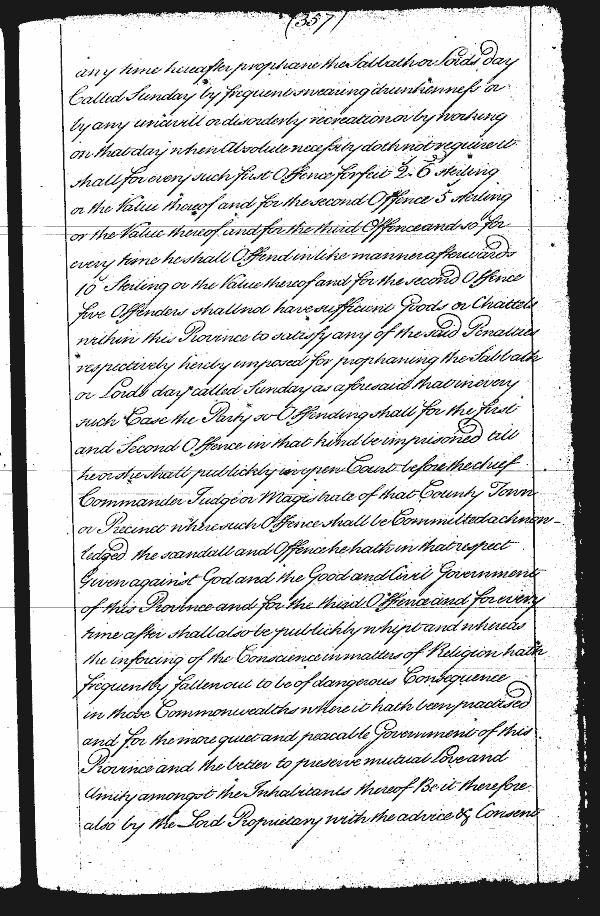 (357)
any time hereafter prophane the Sabbath or Lords day
Called Sunday by frequent swearing drunkenness or
by any uncivill or disorderly recreation or by working
on that day when Absolute necessity doth not require it
shall for every such first Offence forfeit 2s. 6d sterling
or the Value thereof and for the second Offence 5s sterling
or the Value thereof and for the third Offence and so for
every time he shall Offend in like manner afterwards
10s Sterling or the Value thereof and for the second Offence
five Offenders shall not have sufficient Goods or Chattells
within this Province to satisfy any of the said Penalties
respectively hereby imposed for prophaning the Sabbath
or Lords day called Sunday as aforesaid that in every
such Case the Party so Offending shall for the first
and Second Offence in that kind be imprisoned till
he or she shall publickly in open Court before the chief
Commander Judge or Magistrate of that County Town
or Precinct where such Offence shall be Committed acknow-
ledged the scandall and Offence he hath in that respect
Given against God and the Good and Civil Government
of this Province and for the third Offence and for every
time after shall also be publickly whipt and whereas
the inforcing of the Conscience in matters of Religion hath
frequently fallen out to be of dangerous Consequence
in those Commonwealths where it hath been practised
and for the more quiet and peacable Government of this
Province and the better to preserve mutual Love and
Amity amongst the Inhabitants thereof Be it therefore
also by the Lord Proprietary with the advice & Consent